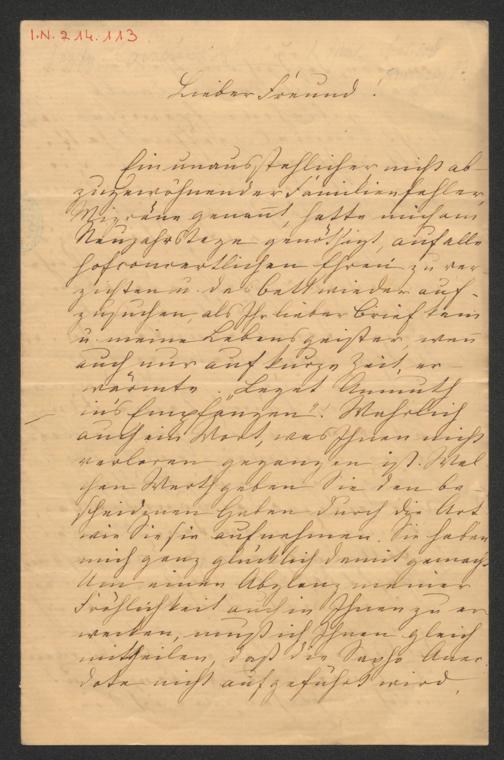 I.N. 214.113
Lieber Freund!
Ein unausstehlicher nicht ab-
zugewöhnender Familienfehler,
Migräne genannt, hatte mich am
Neujahrstage genöthigt, auf alle
hofconcertlichen Ehren zu ver
zichten u. das Bett wieder auf-
zusuchen, als Ihr lieber Brief kam
u. meine Lebensgeister, wenn
auch nur auf kurze Zeit, er
wärmte. „Leget Anmuth
in's Empfangen“! Wahrlich
auch ein Wort, was Ihnen nicht
verloren gegangen ist. Wel
chen Werth geben Sie den be
scheidenen Gaben durch die Art
wie Sie sie aufnehmen. Sie haben
mich ganz glücklich damit gemacht
Um einen Abglanz meiner
Fröhlichkeit auch in Ihnen zu er
wecken, muß ich Ihnen gleich
mittheilen, daß die Sapho Anec
dote nicht aufgeführt wird.